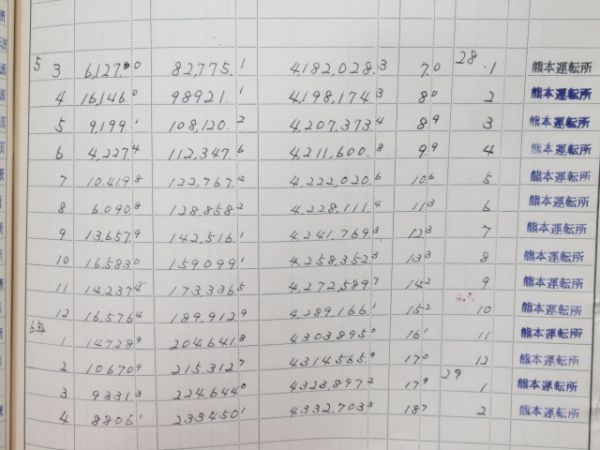 5 3 6,127 0 82,775 1 4,182,028 3 7 0 28 . 1 熊本運転所
4 16,146 0 98921 1 4,198,174 3 8 0 2 熊本運転所
5 9,199 1 108,120 2 4,207,373 4 8 9 3 熊本運転所
6 4,227 4 112,347 6 4,211,600 8 9 9 4 熊本運転所
7 10,419 8 122,767 4 4,222,020 6 10 6 5 熊本運転所
8 6,090 8 128,858 2 4,228,111 4 11 3 6 熊本運転所
9 13,657 9 142,516 1 4,241,769 3 12 3 7 熊本運転所
10 16,583 0 159,099 1 4,258,352 3 13 3 8 熊本運転所
11 14,237 4 173,336 5 4,272,589 7 14 2 9 熊本運転所
12 16,576 4 189,912 9 4,289,166 1 15 2 10 熊本運転所
6年 1 14728 9 204,641 8 4303,895 0 16 1 11 熊本運転所
2 10,670 9 215,312 7 4314,565 9 17 0 12 熊本運転所
3 9331 3 224,644 0 4323,897 2 17 9 29 1 熊本運転所
4 8806 1 233450 1 4332,703 3 18 7 2 熊本運転所